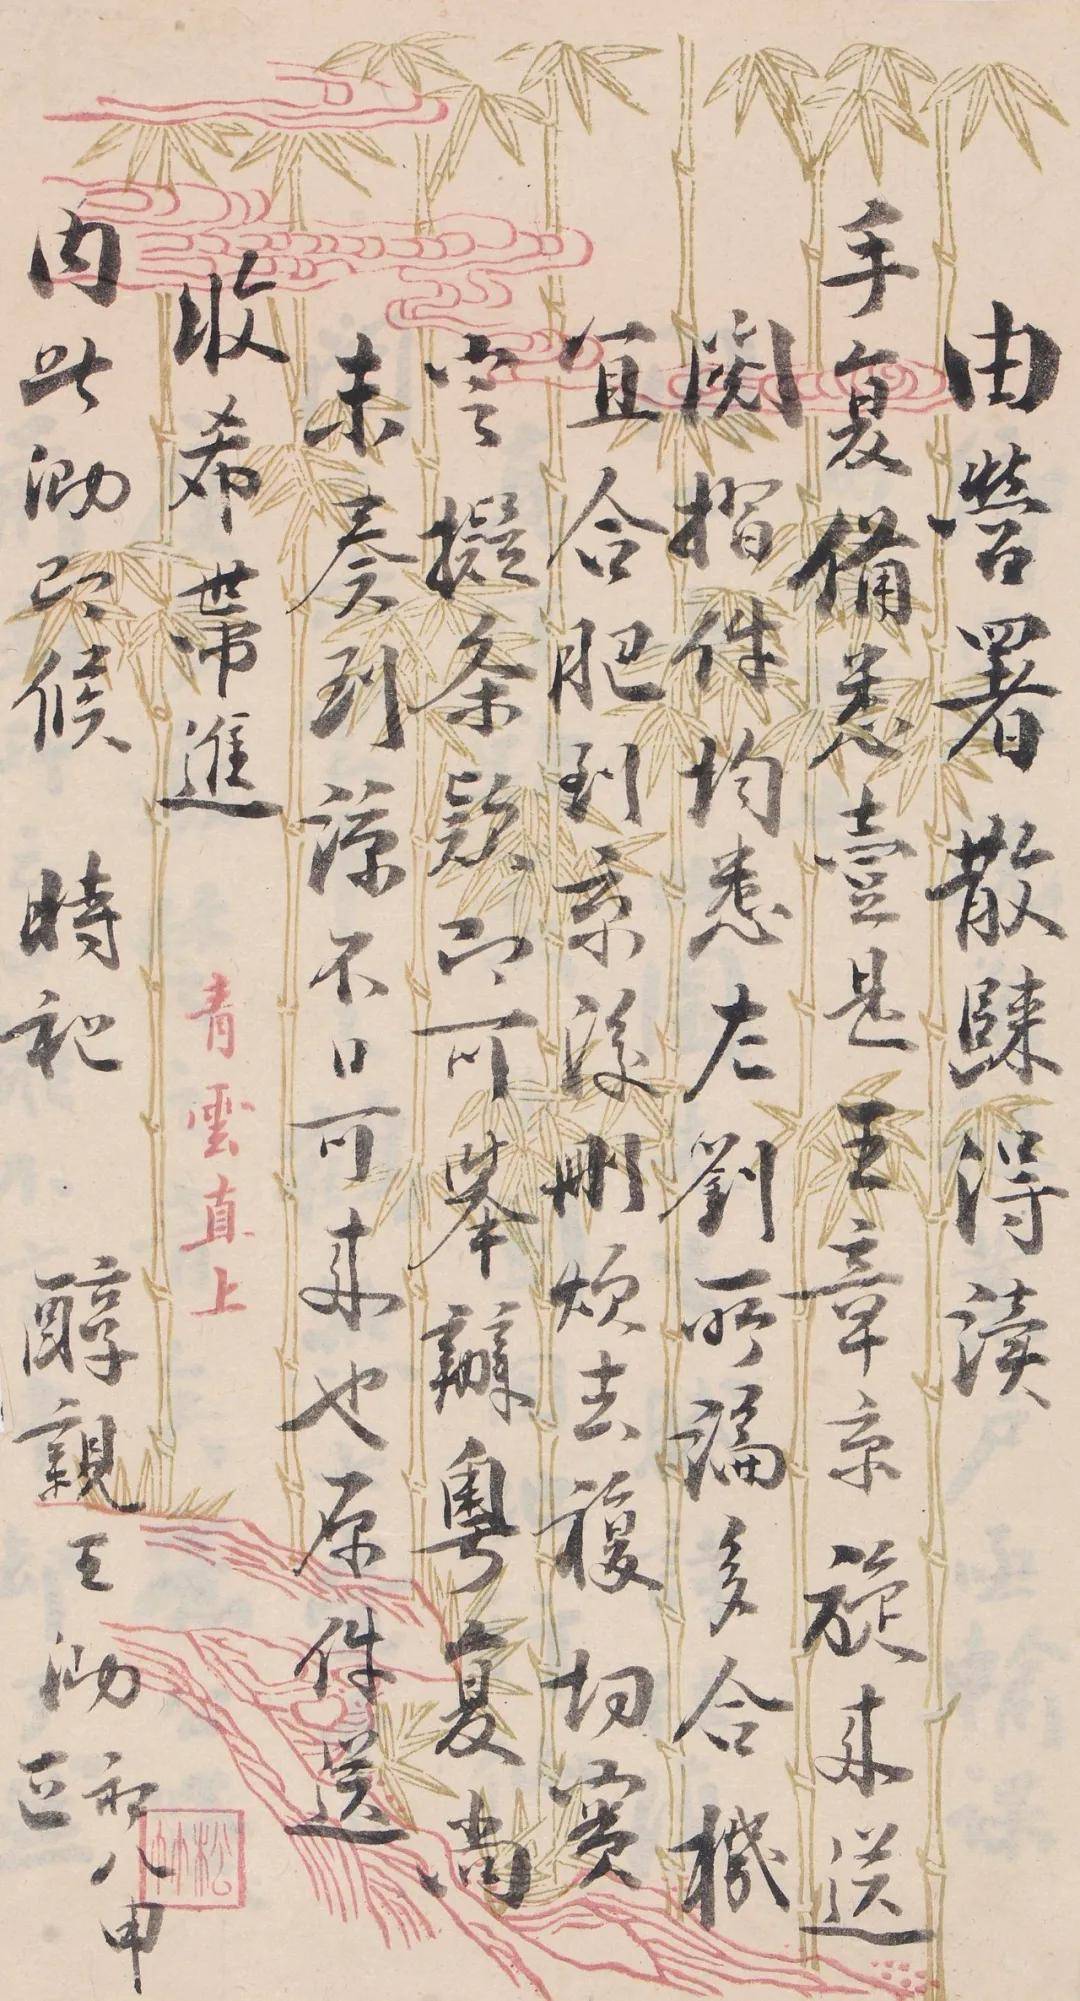 由營署散歸得讀
手复備悉壹是王章京旋来送
閱摺件均悉左劉所論多合機
宜合肥到京後刪煩去複切實
定擬条款即可举辦粵复尚
未奏到諒不日可来也原件送
收希帶進
内此泐即候 時祉 醇親王泐 初八申
青雲直上
松竹